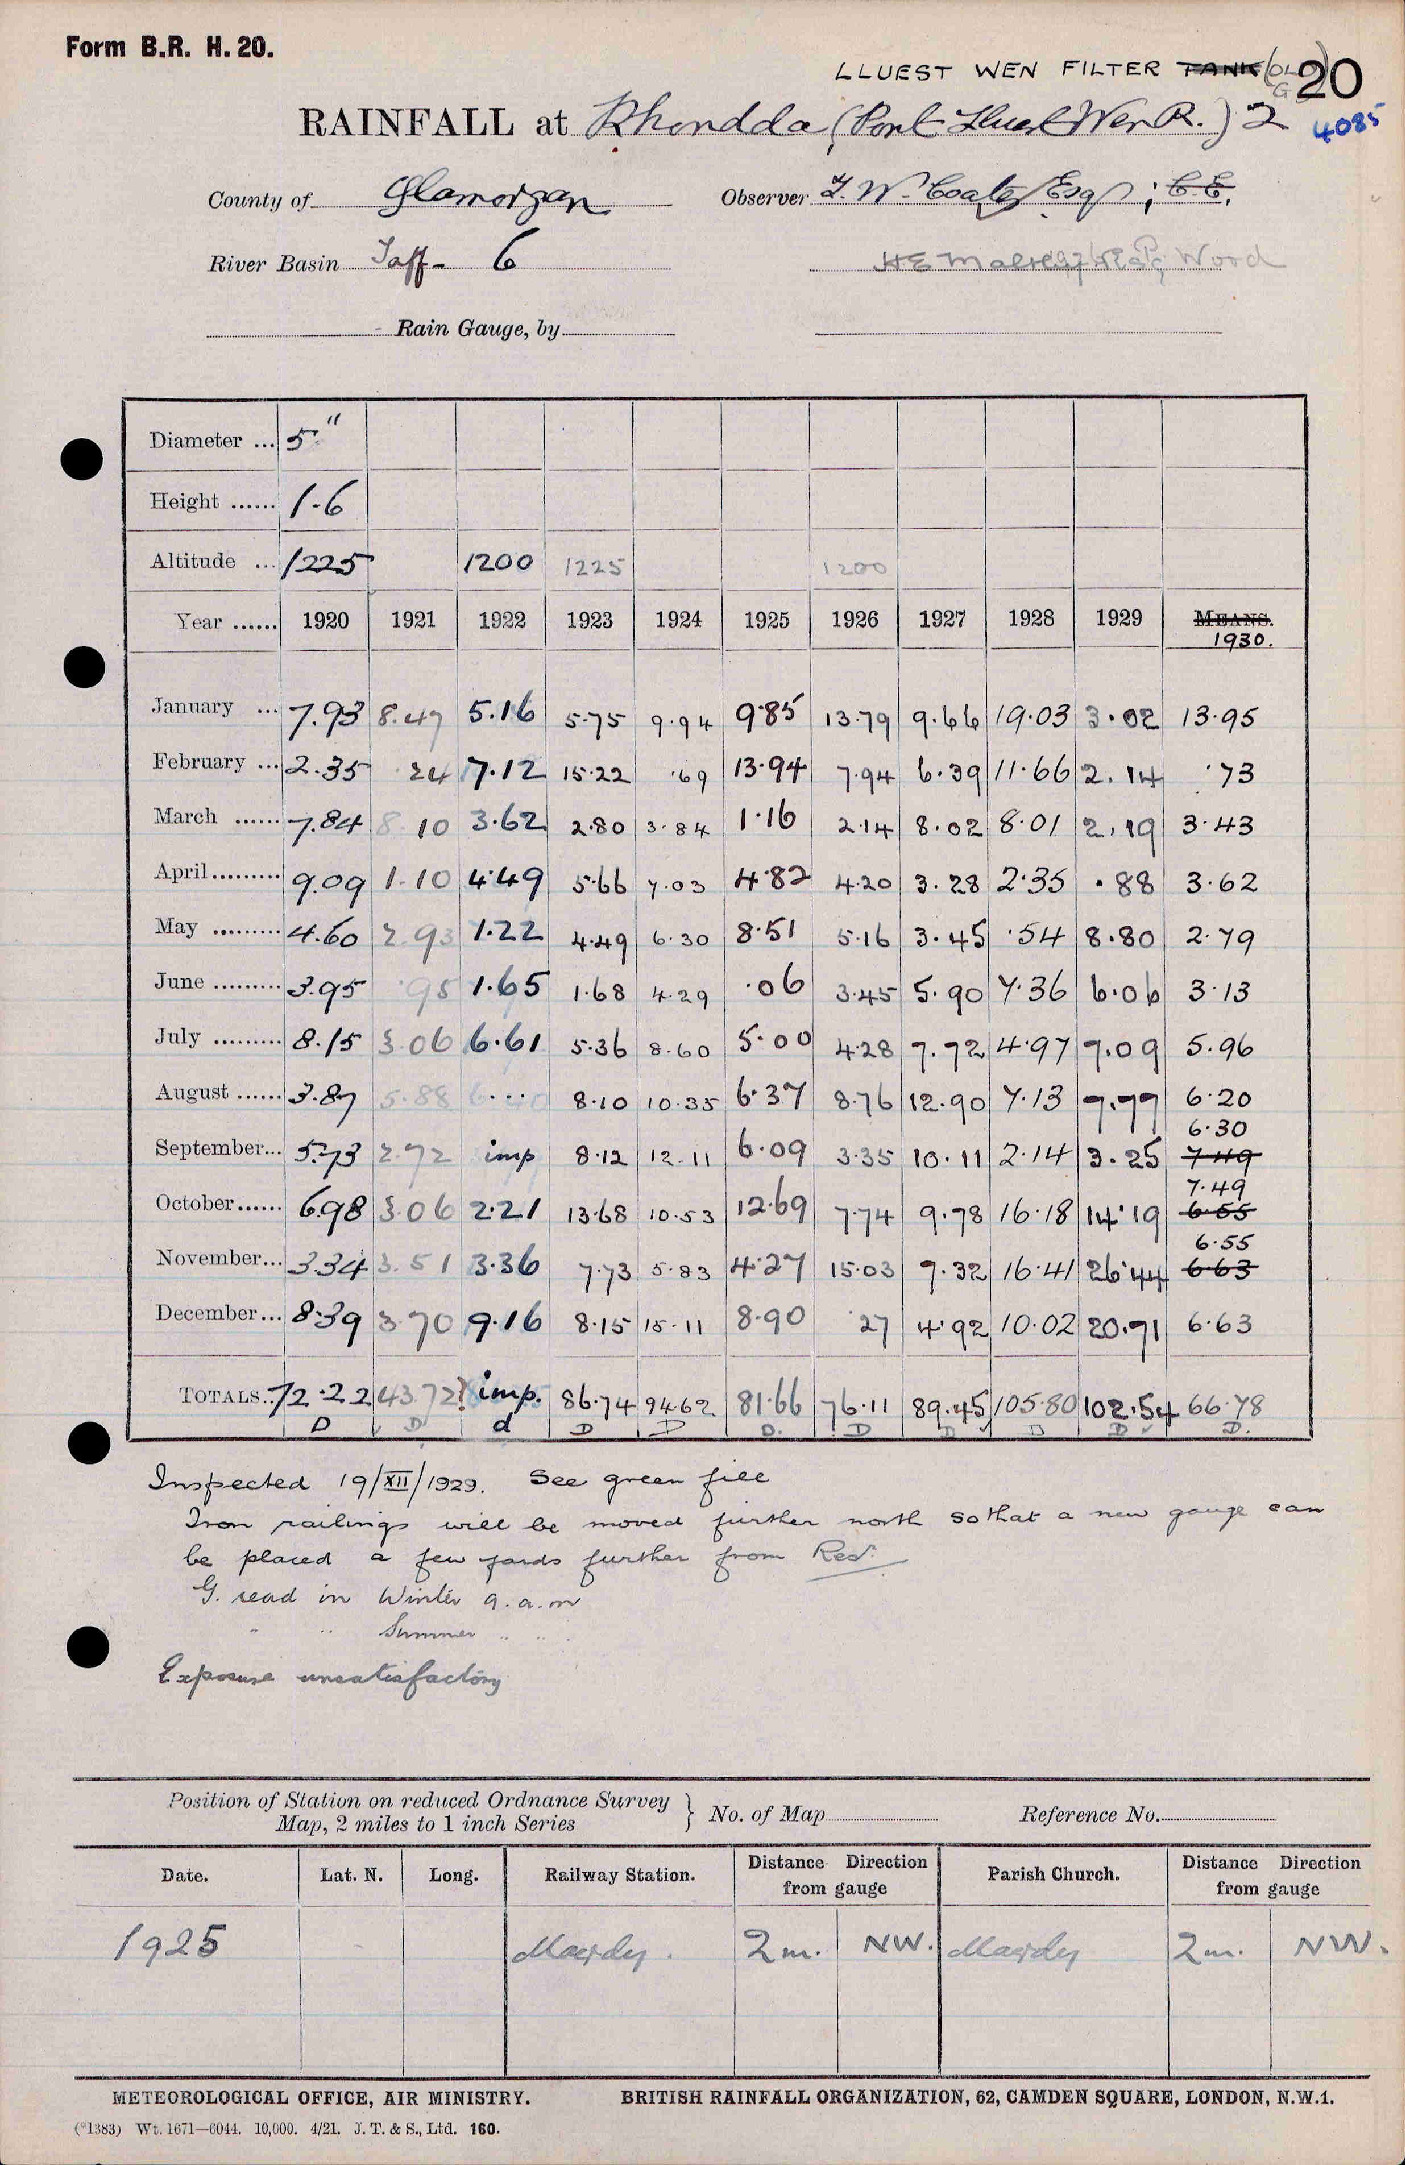 Form B.R. H. 20.
LLUEST WEN FILTER TANK 20
RAINFALL at Rhondda (Pont Lluest Wen R.) 2 4085
County of Glamorgan Observer F. W. Coates Esq; C.E.
River Basin Taff - 6 Wood
Rain Gauge, by
Diameter ... 5"
Height ...... 1-6
Altitude ... 1225 1200 1225 1200
Year ...... 1920 1921 1922 1923 1924 1925 1926 1927 1928 1929 MEANS. 1930.
January ... 7.93 8.47 5.16 5.75 9.94 9.85 13.79 9.66 19.03 3.02 13.95
February ... 2.35 .24 7.12 15.22 .69 13.94 7.94 6.39 11.66 2.14 .73
March ...... 7.84 8.10 3.62 2.80 3.84 1.16 2.14 8.02 8.01 2.19 3.43
April......... 9.09 1.10 4.49 5.66 7.03 4.82 4.20 3.28 2.35 .88 3.62
May ......... 4.60 2.93 1.22 4.49 6.30 8.51 5.16 3.45 .54 8.80 2.79
June ......... 3.95 .95 1.65 1.68 4.29 .06 3.45 5.90 7.36 6.06 3.13
July ......... 8.15 3.06 6.61 5.36 8.60 5.00 4.28 7.72 4.97 7.09 5.96
August ...... 3.87 5.88 ... 8.10 10.35 6.37 8.76 12.90 7.13 7.77 6.20
September... 5.73 2.72 imp 8.12 12.11 6.09 3.35 10.11 2.14 3.25 7.49 6.30
October...... 6.98 3.06 2.21 13.68 10.53 12.69 7.74 9.78 16.18 14.19 6.55 7.49
November... 3.34 3.51 3.36 7.73 5.83 4.27 15.03 7.32 16.41 26.44 6.63 6.55
December... 8.39 3.70 9.16 8.15 15.11 8.90 .27 4.92 10.02 20.71 6.63
TOTALS.. 72.22 43.72? imp. 86.74 94.62 81.66 76.11 89.45 105.80 102.54 66.78
D D d D D D. D D D D D.
Inspected 19/XII/1929. See green file
Iron railings will be moved further north so that a new gauge can
be placed a few yards further from Resr.
G. read in Winter 9 a.m
" " Summer " "
Exposure unsatisfactory
Position of Station on reduced Ordnance Survey Map, 2 miles to 1 inch Series } No. of Map Reference No.
Date. Lat. N. Long. Railway Station. Distance Direction from gauge Parish Church. Distance Direction from gauge
1925 Maerdy. 2 m. NW. Maerdy 2 m. NW.
METEOROLOGICAL OFFICE, AIR MINISTRY. BRITISH RAINFALL ORGANIZATION, 62, CAMDEN SQUARE, LONDON, N.W.1.
(*1383) Wt. 1671—6044. 10,000. 4/21. J. T. & S., Ltd. 160.